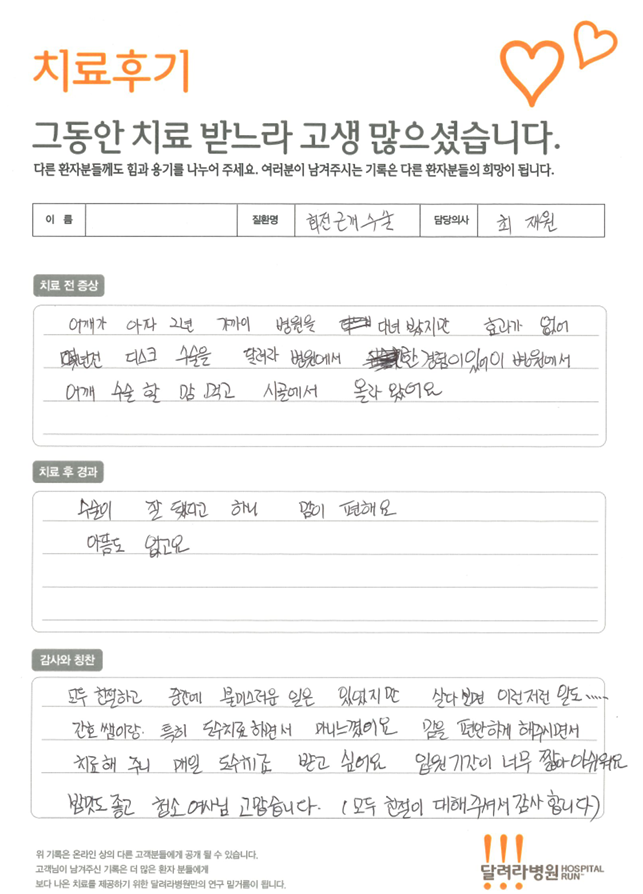 치료후기
그동안 치료 받느라 고생 많으셨습니다.
다른 환자분들께도 힘과 용기를 나누어 주세요. 여러분이 남겨주시는 기록은 다른 환자분들의 희망이 됩니다.
이 름 질환명 회전근개수술 담당의사 최 재원
치료 전 증상
어깨가 아파 2년 가까이 병원을 다녀 봤지만 효과가 없어
몇년전 디스크 수술을 달려라 병원에서 한 경험이 있어 이 병원에서
어깨 수술 할 맘 먹고 시골에서 올라 왔어요
치료 후 경과
수술이 잘 됐다고 하니 맘이 편해요
아픔도 없고요
감사와 칭찬
모두 친절하고 중간에 불미스러운 일은 있었지만 살다보면 이런저런 일도.....
간호쌤이랑. 특히 도수치료하면서 많이느꼈어요 맘을 편안하게 해주시면서
치료해 주니 매일 도수치료 받고 싶어요 입원기간이 너무 짧아 아쉬워요
밥맛도 좋고 청소 여사님 고맙습니다. (모두 친절이 대해주셔서 감사합니다)
위 기록은 온라인 상의 다른 고객분들에게 공개 될 수 있습니다.
고객님이 남겨주신 기록은 더 많은 환자 분들에게
보다 나은 치료를 제공하기 위한 달려라병원만의 연구 밑거름이 됩니다.
달려라병원 HOSPITAL RUN